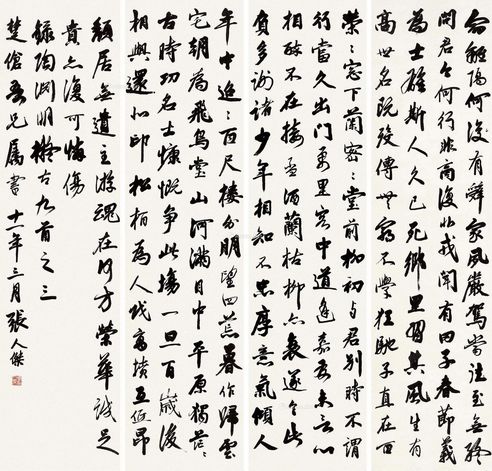 命離隔復何有辭家夙嚴駕當往至無終
問君今何行非商復非戎聞有田子春節義
為士雄斯人久已死鄉里習其風生有
高世名既没傳無窮不學狂馳子直在百
榮榮窓下蘭密密堂前柳初與君別時不謂
行當久出門萬里客中道逢嘉友未言心
相醉不在接盃酒蘭枯柳亦衰遂令此
負多謝諸少年相知不忠厚意氣傾人
年中迢迢百尺樓分明望四荒暮作歸雲
宅朝為飛鳥堂山河滿目中平原獨茫茫
古時功名士慷慨爭此場一旦百歲後
相與還北邙松柏為人伐高墳互低昂
頹基無遺主游魂在何方榮華誠足
貴亦復可憐傷
錄陶淵明擬古九首之三
楚傖吾兄屬書 十一年三月 張人傑